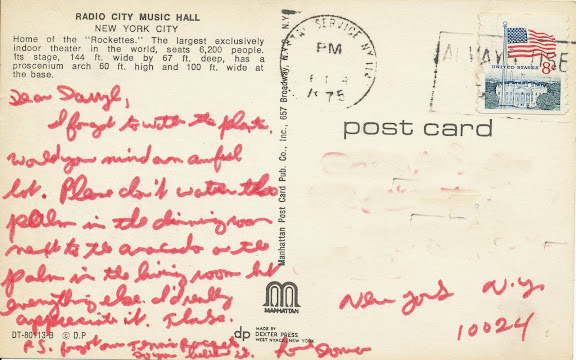 RADIO CITY MUSIC HALL
NEW YORK CITY
Home of the "Rockettes." The largest exclusively
indoor theater in the world, seats 6,200 people.
Its stage, 144 ft. wide by 67 ft. deep, has a
proscenium arch 60 ft. high and 100 ft. wide at
the base.
Dear Darryl,
I forgot to water the plants.
Would you mind an awful
lot. Please don't water the
palm in the dinning room
next to the avocado or the
palm in the living room but
everything else. I'd really
appreciate it. Thanks.
P.S. forgot our Tennis Rackets
DT-80413-B © D.P
Manhattan Post Card Pub. Co., Inc., 657 Broadway, N.Y., N.Y.
MANHATTAN
dp
MADE BY
DEXTER PRESS
WEST NYACK, NEW YORK
POSTAL SERVICE NY
PM
1975
UNITED STATES 8c
post card
New York N.Y.
10024